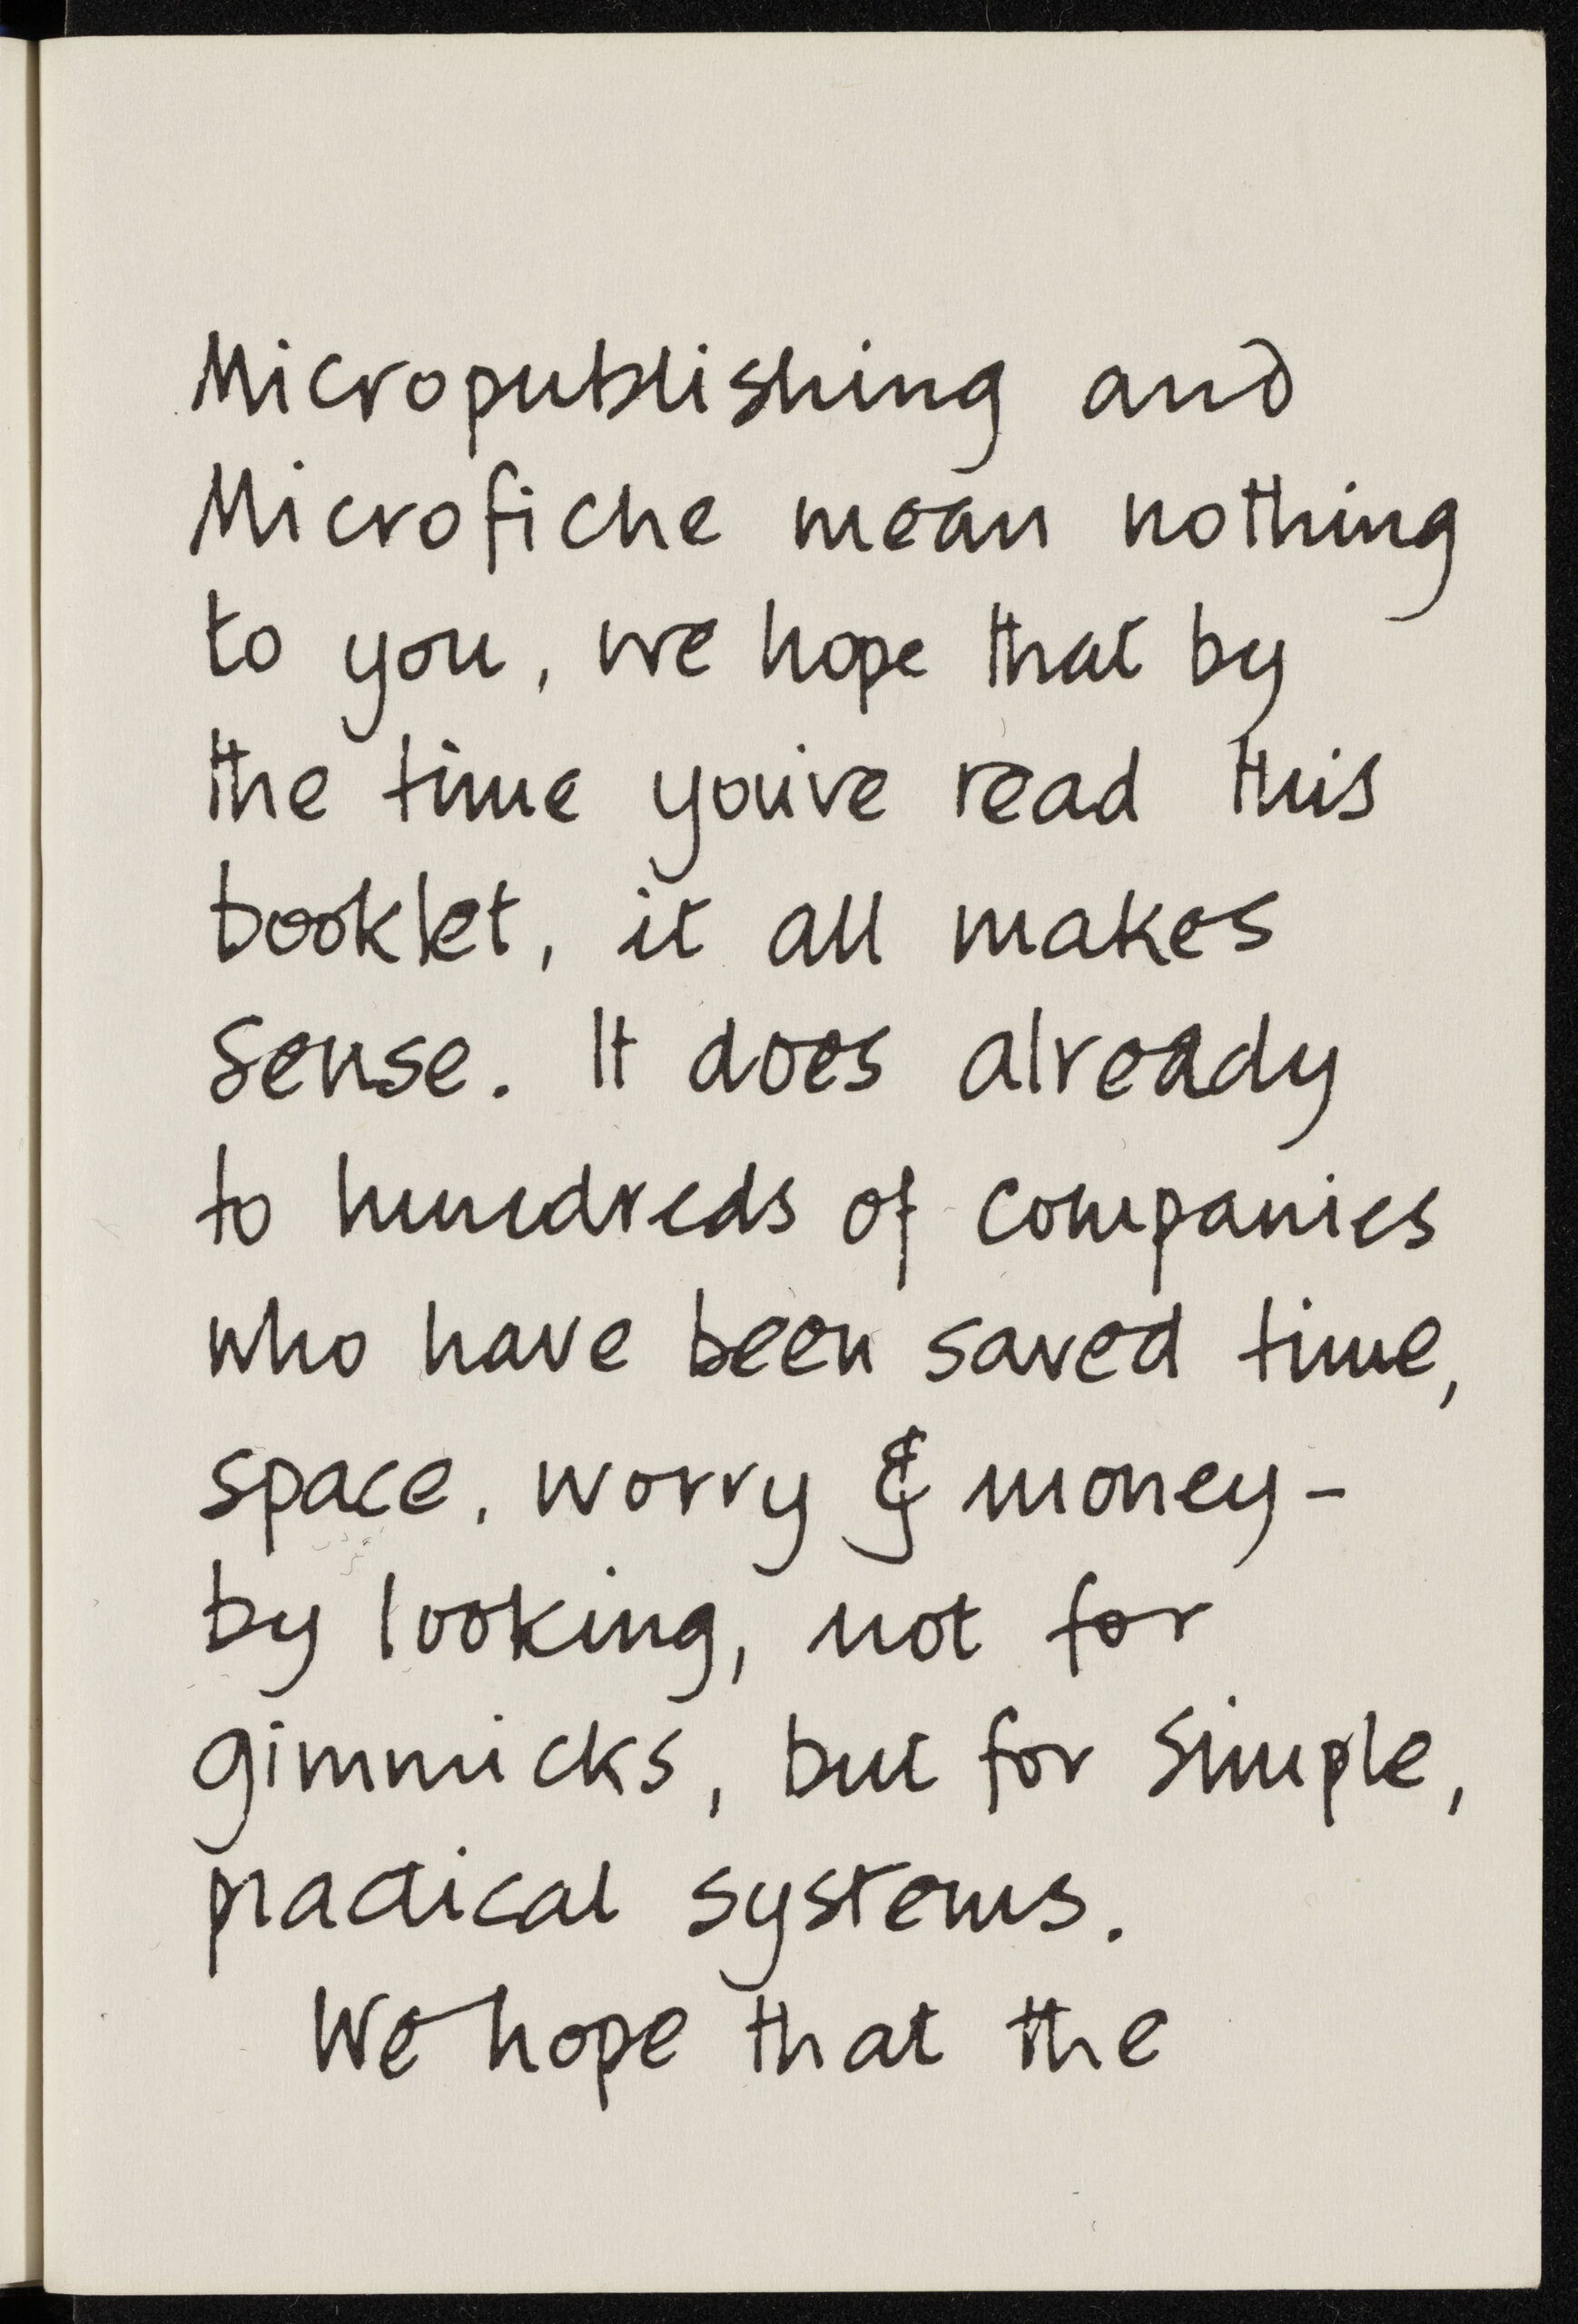 Micropublishing and
Microfiche mean nothing
to you, we hope that by
the time you've read this
booklet, it all makes
sense. It does already
to hundreds of companies
who have been saved time,
space, worry & money -
by looking, not for
gimmicks, but for simple,
practical systems.
We hope that the